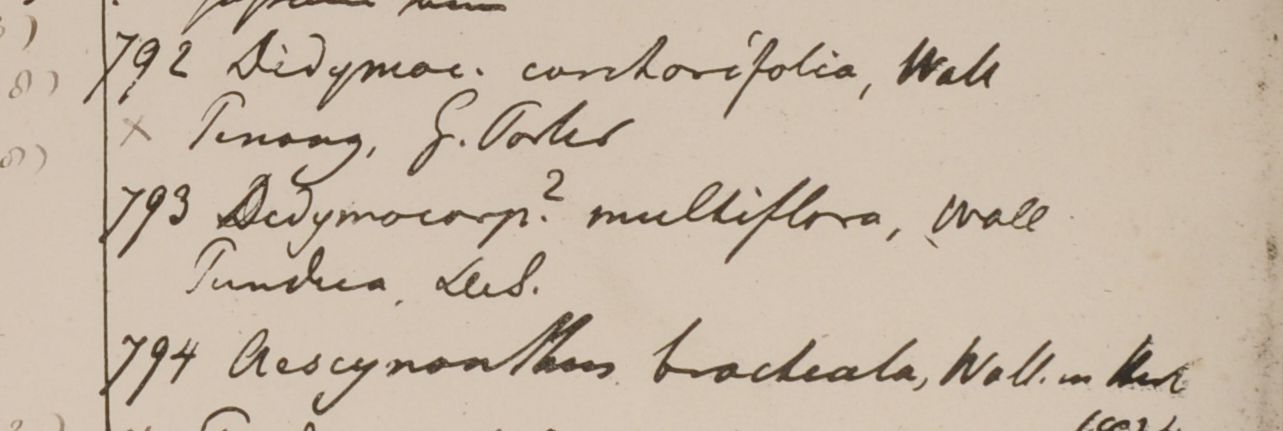 792 Didymoc. corchorifolia, Wall
× Penang, G. Porter
793 Didymocarp.? multiflora, Wall
Tundua, Des.
794 Aescynanthus bracteata, Wall. in Herb